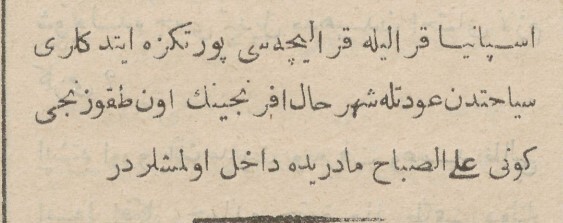 اسپانيا قراليله قراليچه‌سی پورتكزه ايتدكاری
سياحتدن عودتله شهر حال افرنجينك اون طقوزنجی
كونی علی الصباح مادريده داخل اولمشلردر